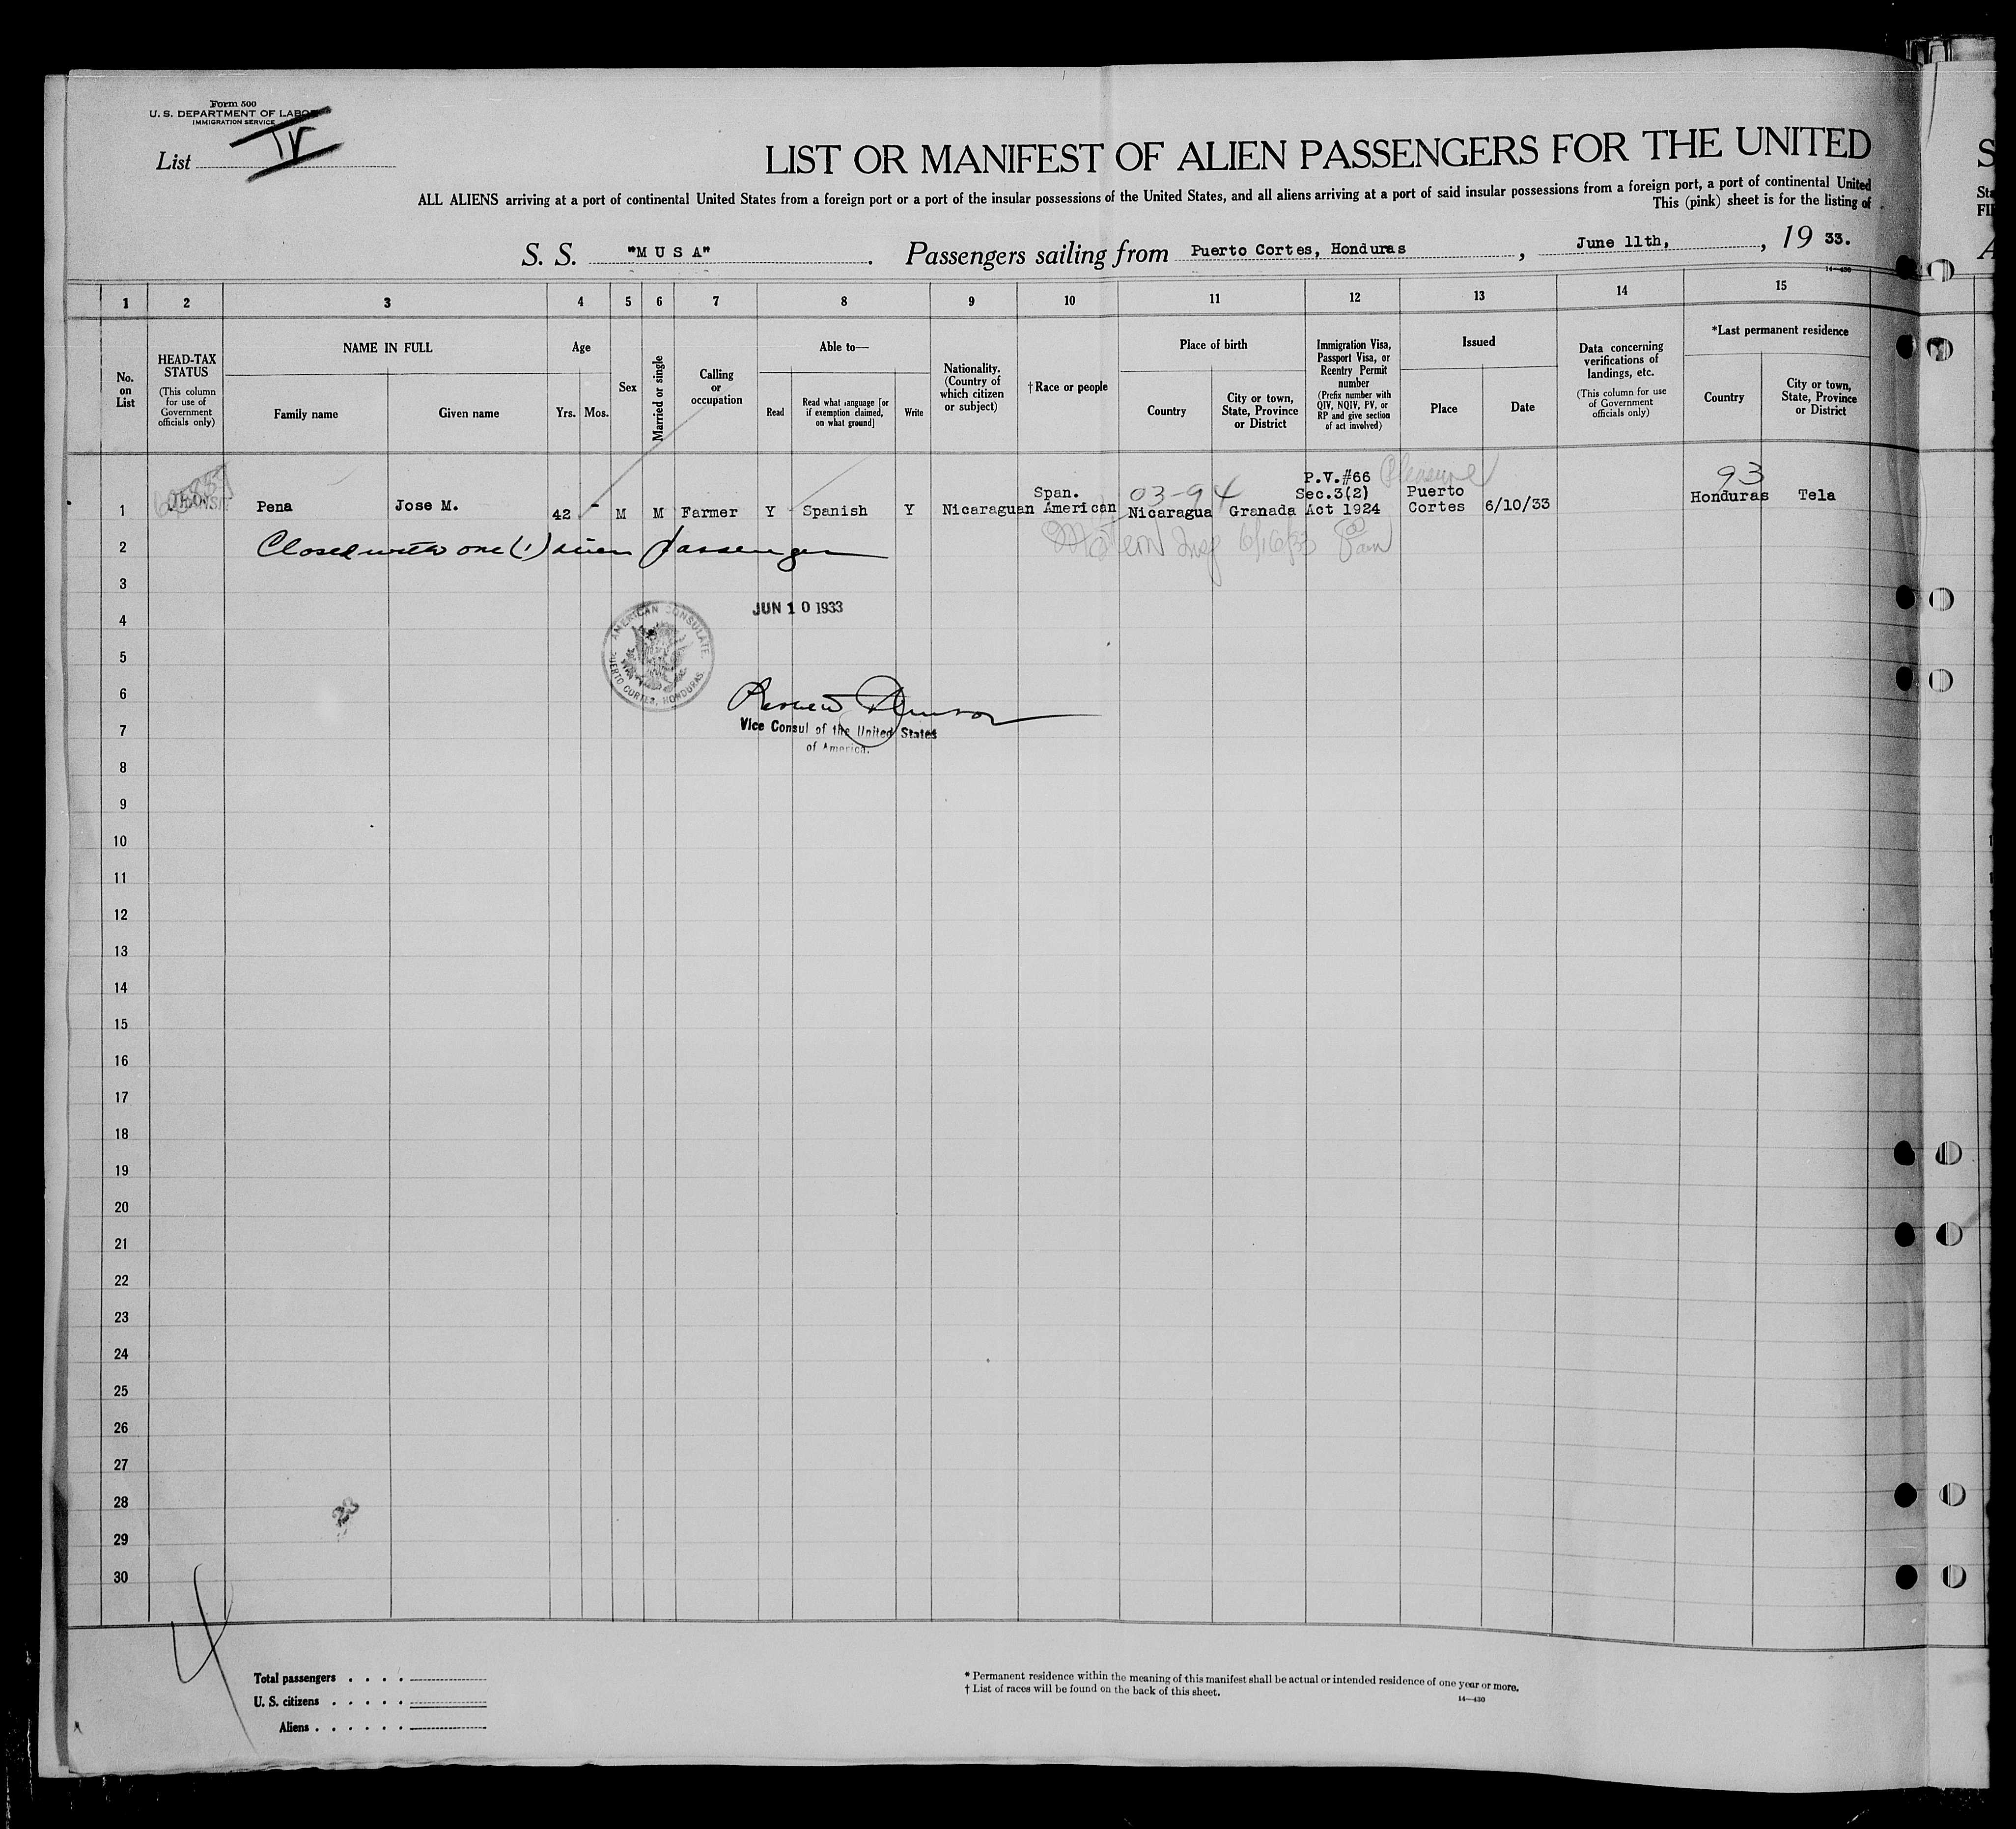 Form 500
U. S. DEPARTMENT OF LABOR
IMMIGRATION SERVICE
List IV
LIST OR MANIFEST OF ALIEN PASSENGERS FOR THE UNITED
ALL ALIENS arriving at a port of continental United States from a foreign port or a port of the insular possessions of the United States, and all aliens arriving at a port of said insular possessions from a foreign port, a port of continental United
This (pink) sheet is for the listing of
S. S. "M U S A". Passengers sailing from Puerto Cortes, Honduras, June 11th, , 19 33.
14—430
1 2 3 4 5 6 7 8 9 10 11 12 13 14 15
No. on List
HEAD-TAX STATUS
(This column for use of Government officials only)
NAME IN FULL
Family name
Given name
Age
Yrs. Mos.
Sex
Married or single
Calling or occupation
Able to—
Read
Read what language [or if exemption claimed, on what ground]
Write
Nationality. (Country of which citizen or subject)
†Race or people
Place of birth
Country
City or town, State, Province or District
Immigration Visa, Passport Visa, or Reentry Permit number
(Prefix number with QIV, NQIV, PV, or RP and give section of act involved)
Issued
Place
Date
Data concerning verifications of landings, etc.
(This column for use of Government officials only)
*Last permanent residence
Country
City or town, State, Province or District
1 TRANSIT Pena Jose M. 42 - M M Farmer Y Spanish Y Nicaraguan Span. American 03-94 Nicaragua Granada P.V.#66 Sec.3(2) Act 1924 Pleasure Puerto Cortes 6/10/33 93 Honduras Tela
2 Closed with one (1) alien passenger 6/16/33 8 am
3
4 JUN 10 1933
AMERICAN CONSULATE.
PUERTO CORTES, HONDURAS.
5
6
7 Vice Consul of the United States
of America.
8
9
10
11
12
13
14
15
16
17
18
19
20
21
22
23
24
25
26
27
28
29
30
4
Total passengers
U. S. citizens
Aliens
* Permanent residence within the meaning of this manifest shall be actual or intended residence of one year or more.
† List of races will be found on the back of this sheet.
14—430